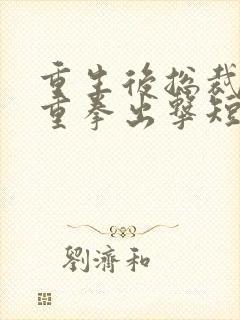 重生後總裁
重拳出擊短
劉濟和